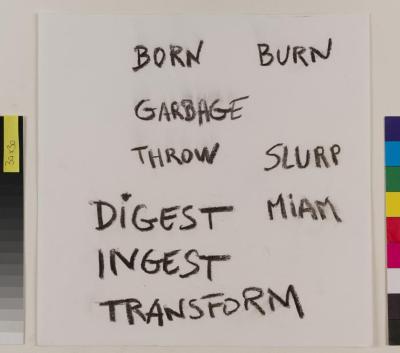 BORN BURN
GARBAGE
THROW SLURP
DiGEST MiAM
INGEST
TRANSFORM
30x30